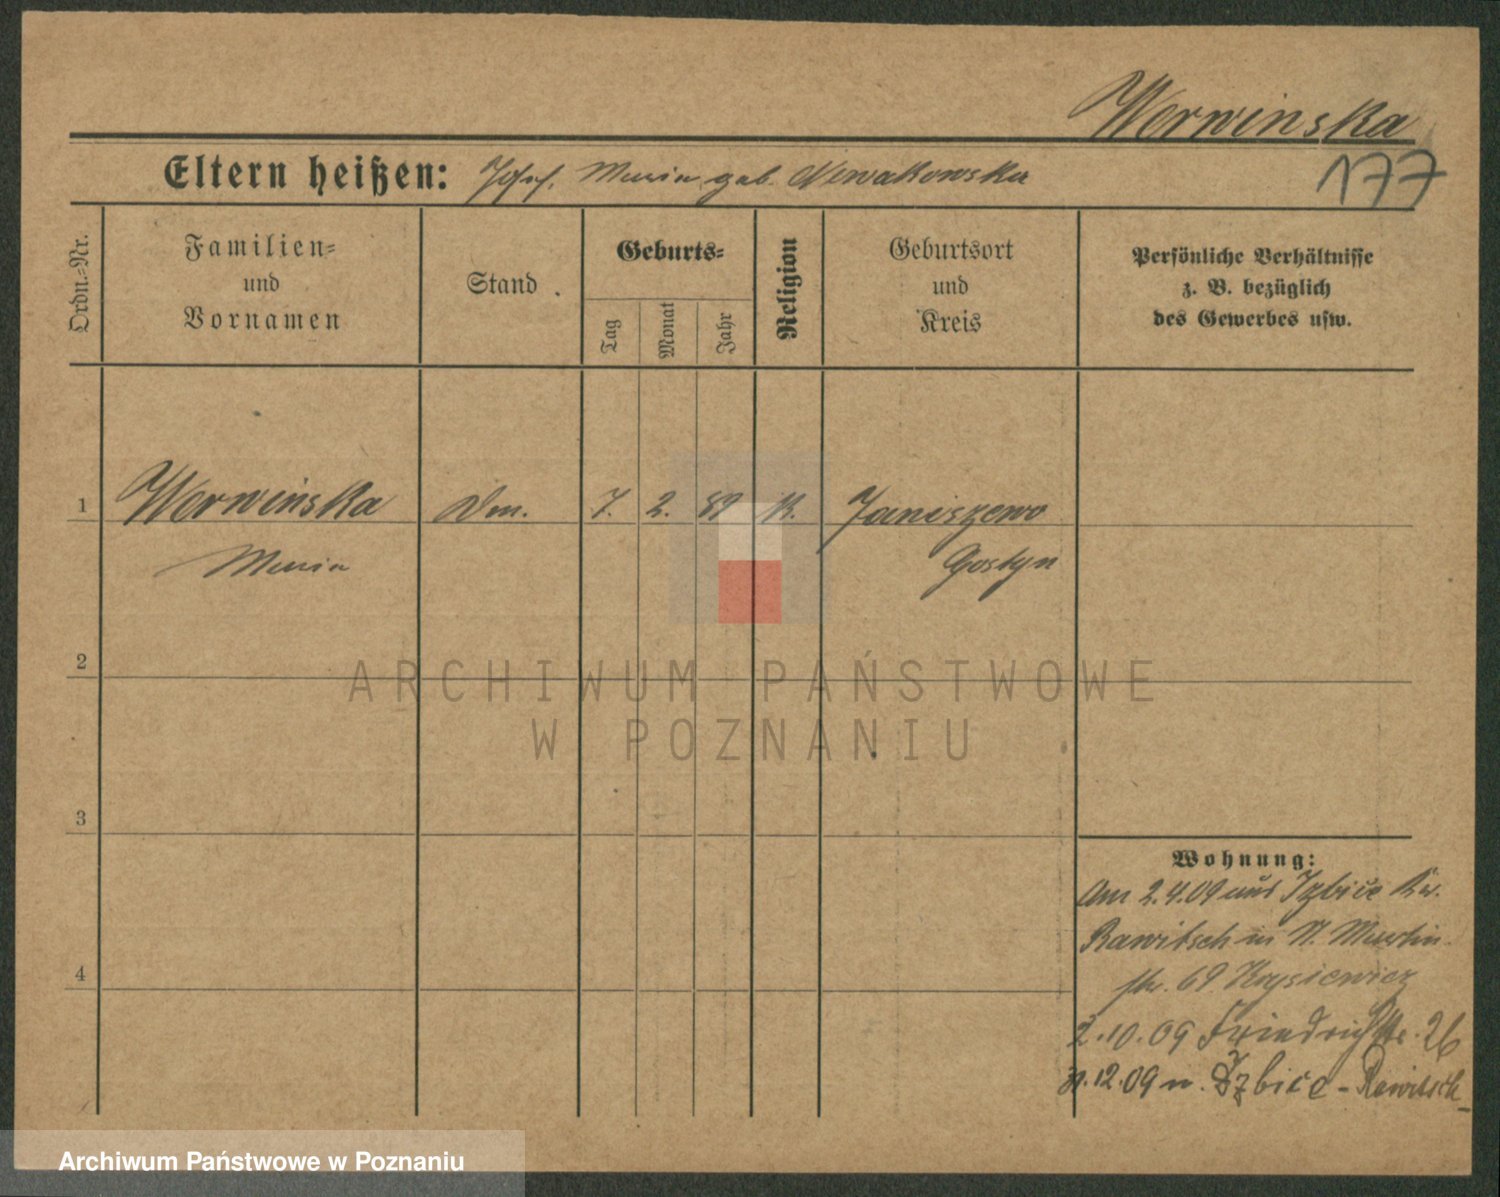 Worwinska
177
Eltern heißen: Josef. Maria geb. Nowakowska
Ordn.-Nr.
Familien-
und
Vornamen
Stand
Geburts-
Tag
Monat
Jahr
Religion
Geburtsort
und
Kreis
Persönliche Verhältnisse
z. B. bezüglich
des Gewerbes usw.
1 Worwinska Dm. 7. 2. 89 K. Janiszewo
Maria Gostyn
2
ARCHIWUM PAŃSTWOWE
W POZNANIU
3
Wohnung:
Am 2.4.09 aus Izbice Kr.
Rawitsch in St. Martin-
str. 69 Krysiewicz
4
2.10.09 Friedrichstr. 26
12.09 n. Izbice - Rawitsch
Archiwum Państwowe w Poznaniu